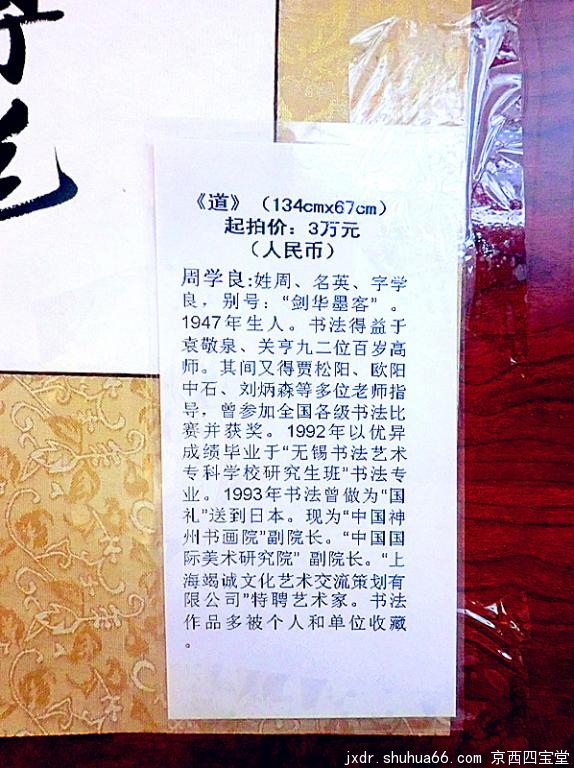 《道》（134cmx67cm）
起拍价：3万元
（人民币）
周学良:姓周、名英、字学
良，别号：“剑华墨客”。
1947年生人。书法得益于
袁敬泉、关亨九二位百岁高
师。其间又得贾松阳、欧阳
中石、刘炳森等多位老师指
导，曾参加全国各级书法比
赛并获奖。1992年以优异
成绩毕业于“无锡书法艺术
专科学校研究生班”书法专
业。1993年书法曾做为“国
礼”送到日本。现为“中国神
州书画院”副院长。“中国国
际美术研究院” 副院长。“上
海竭诚文化艺术交流策划有
限公司”特聘艺术家。书法
作品多被个人和单位收藏
。
jxdr.shuhua66.com 京西四宝堂